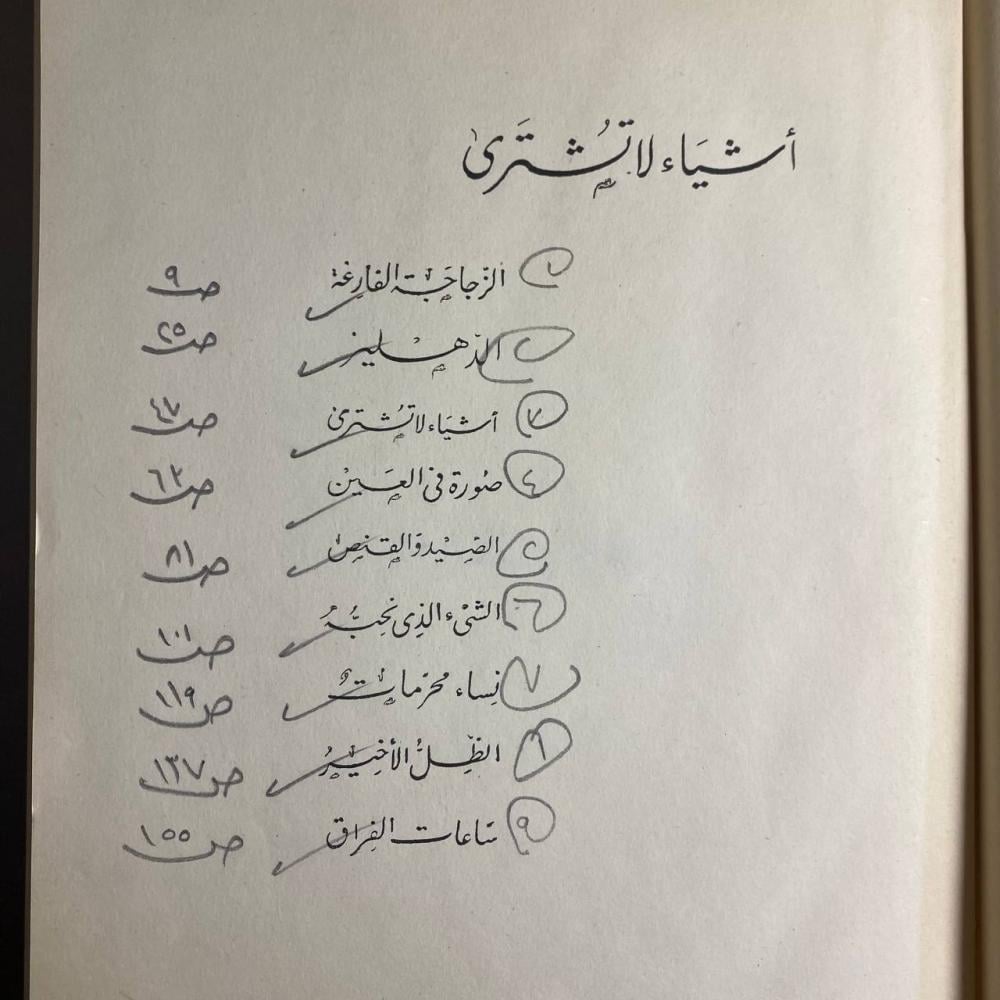 أشياء لا تُشترى
١ الزّجاجة الفارغة ص ٩
٢ الدّهليز ص ٢٥
٣ أشياء لا تُشترى ص ٤٧
٤ صُورة في العَين ص ٦٣
٥ الصّيد وَالقنص ص ٨١
٦ الشئ الذِى نحِبُّهُ ص ١٠١
٧ نِساء محرّماتٌ ص ١١٩
٨ الظِّلُّ الأخيرُ ص ١٣٧
٩ سَاعات الفِراق ص ١٥٥